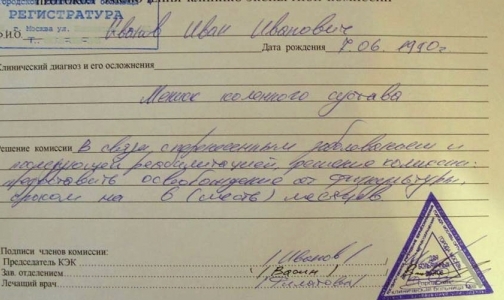 РЕГИСТРАТУРА
г. Москва ул.
ФИО Иванов Иван Иванович
Дата рождения 7.06.1990г.
Клинический диагноз и его осложнения
Мениск коленного сустава
Решение комиссии В связи с перенесенным заболеванием и
последующей реабилитацией, решение комиссии:
предоставить освобождение от физкультуры,
сроком на 6 (шесть) месяцев
Подписи членов комиссии:
Председатель КЭК /Иванов/
Зав. отделением /Васин/
Лечащий врач /Филатова/